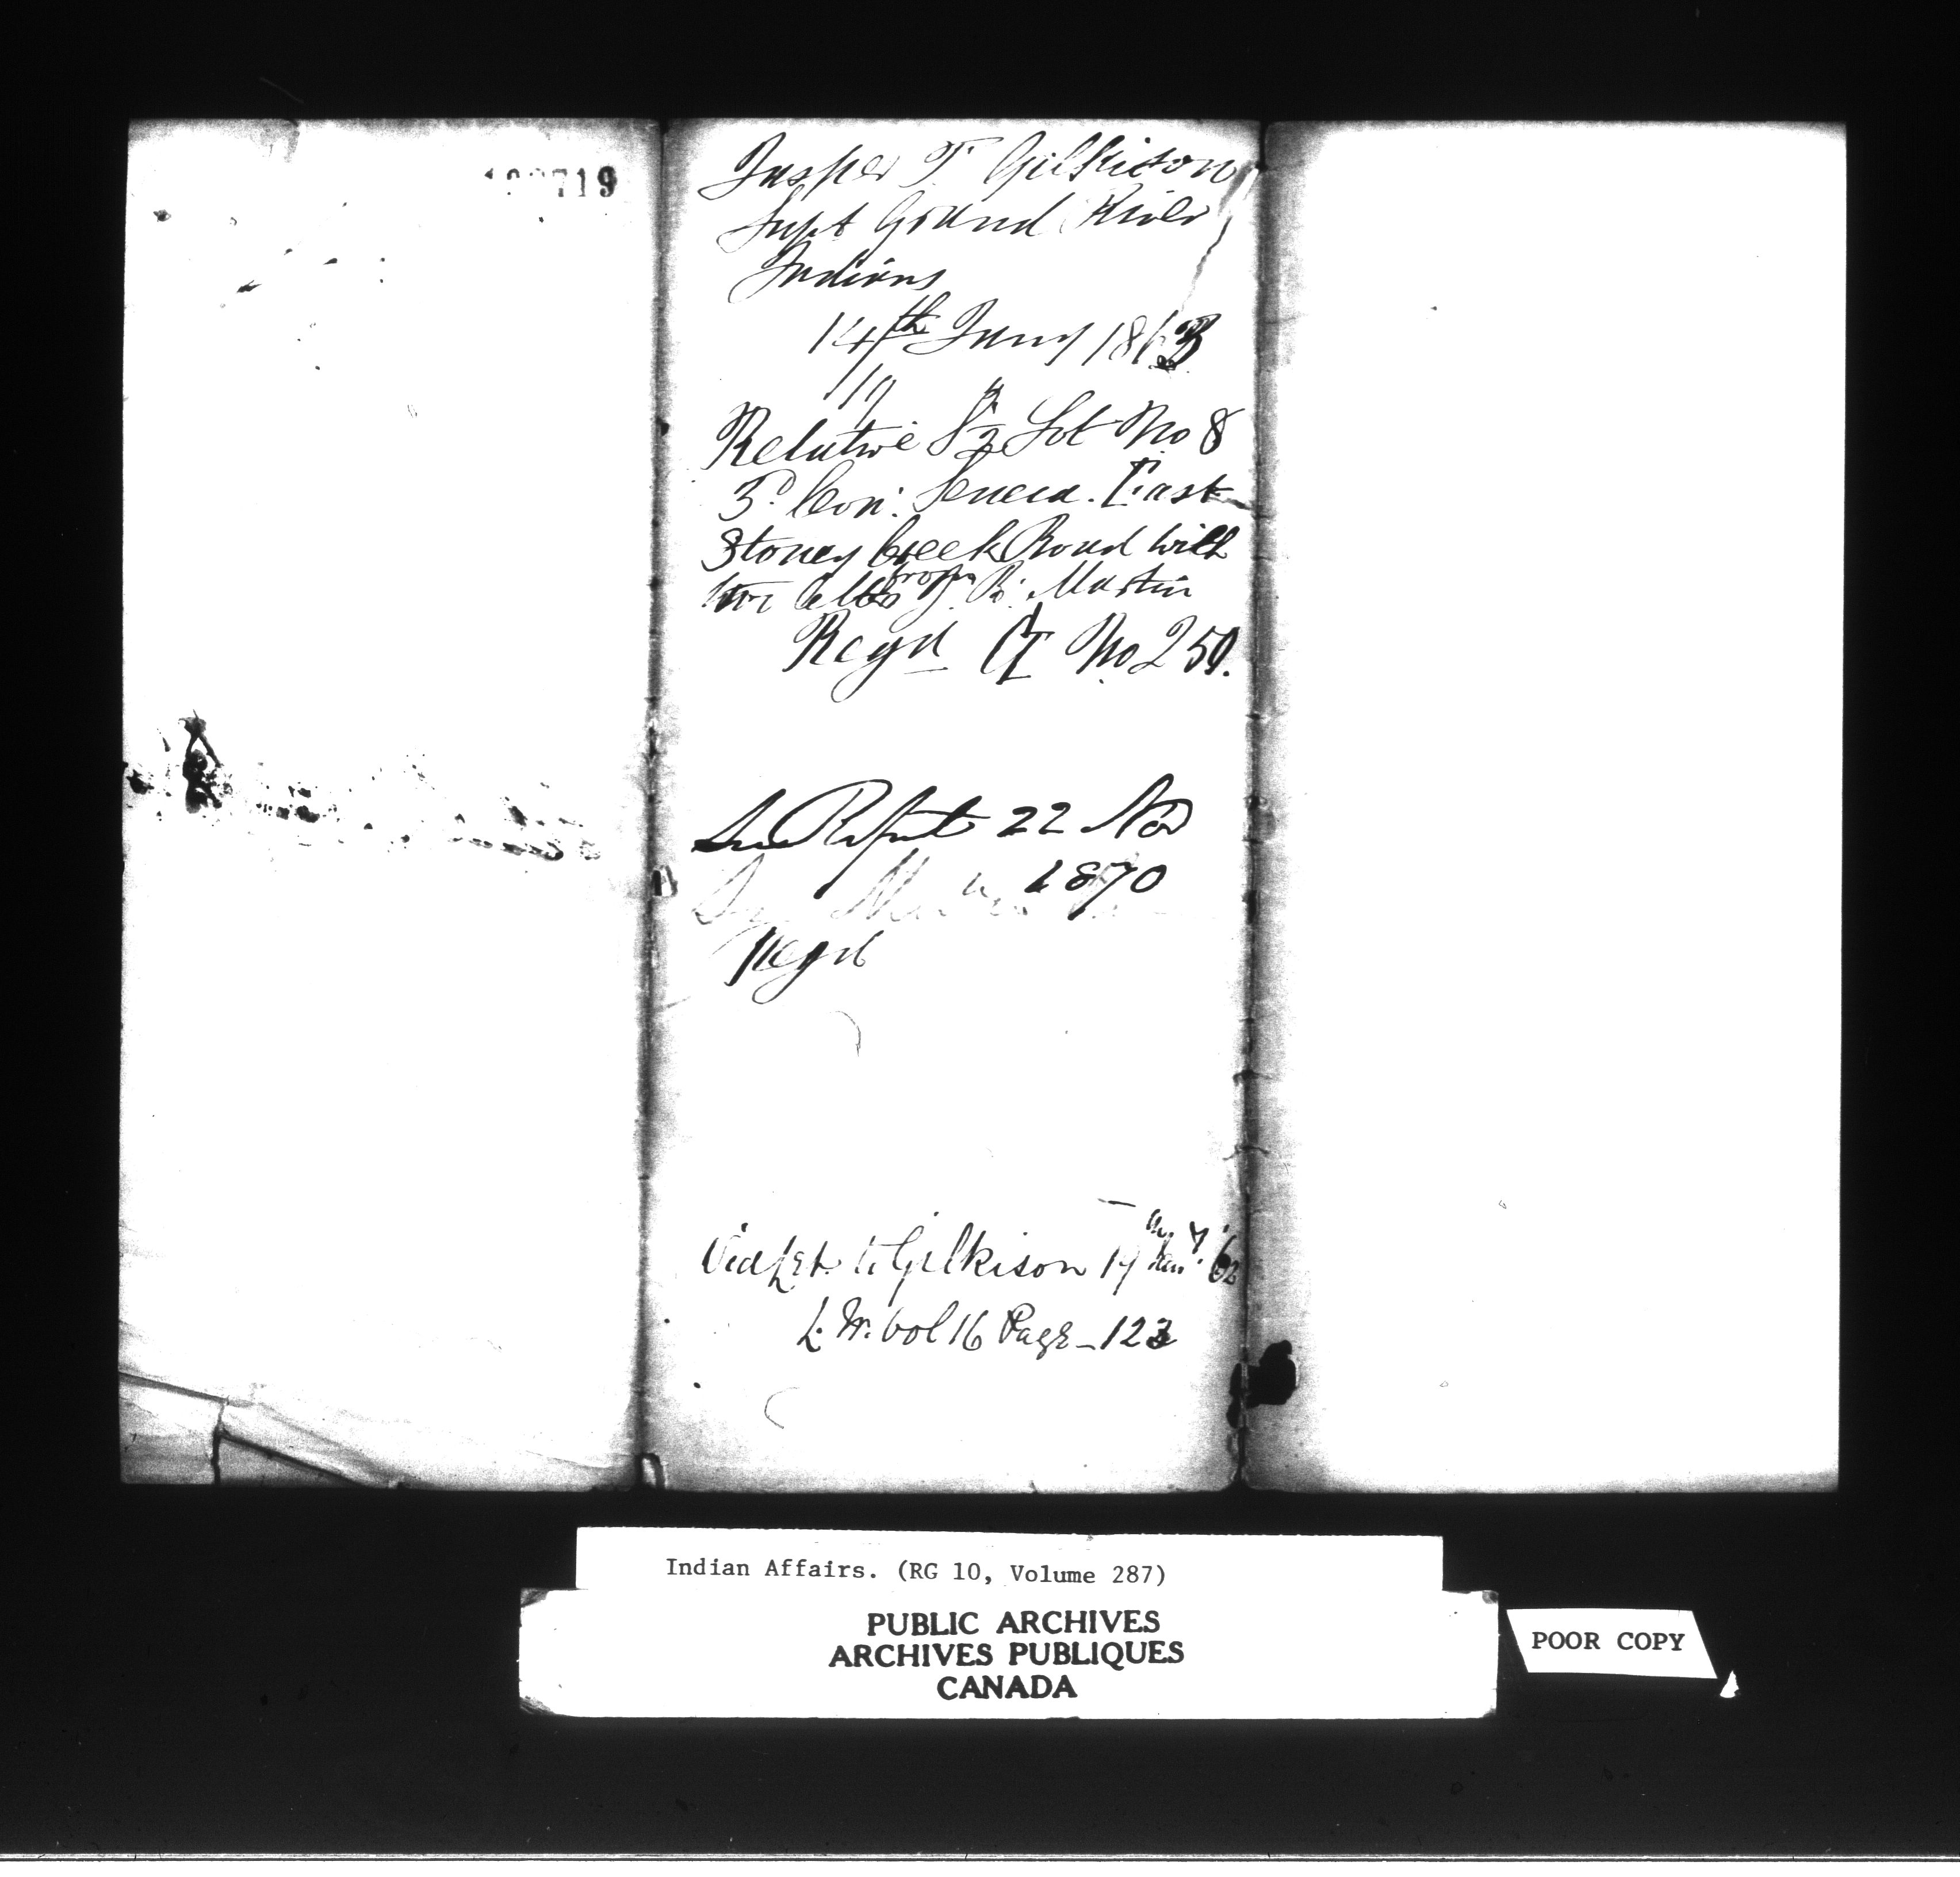 719
Jasper T. Gilkison
Supt Grand River
Indians
14th Jany 1863
Relative S ½ Lot No 8
3d Con: Seneca. East
Stoney Creek Road with
two letters from J. R. Martin
Regd A No 250.
See Report 22 Nov
1870
Regd
Vide Let. to Gilkison 19th Jany 62
L. W. vol 16 Page - 123
Indian Affairs. (RG 10, Volume 287)
PUBLIC ARCHIVES
ARCHIVES PUBLIQUES
CANADA
POOR COPY